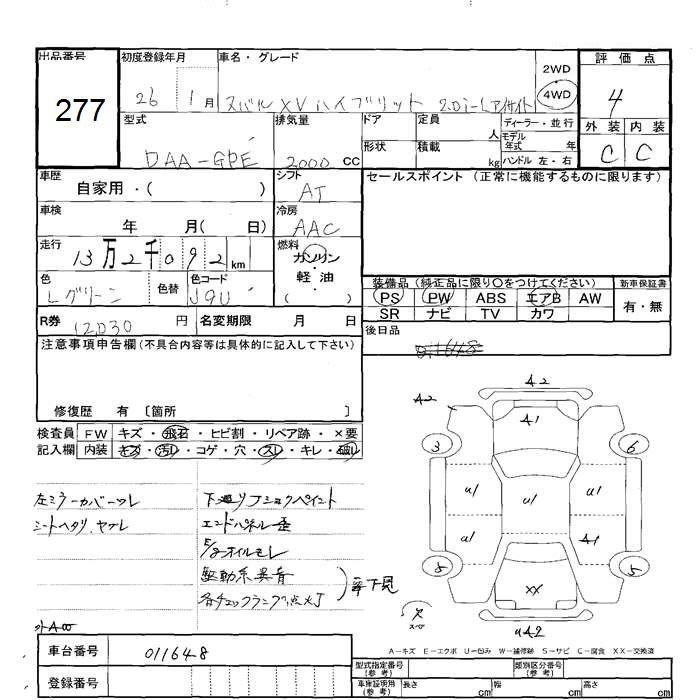 出品番号 初度登録年月 車名・グレード 評価点
277
26 1月 スバル XV ハイブリット 2.0i-L アイサイト 2WD 4WD 4
型式 排気量 ドア 定員 人 ディーラー・並行 外装 内装
DAA-GPE 2000 CC 形状 積載 kg モデル年式 年 ハンドル 左・右 C C
車歴 自家用・( ) シフト AT セールスポイント (正常に機能するものに限ります)
車検 年 月( 日) 冷房 AAC
走行 13万2千092km 燃料 ガソリン・軽油・( )
色 Lグリーン 色替 色コード J9U
装備品 (純正品に限り○をつけてください) 新車保証書
PS PW ABS エアB AW 有・無
SR ナビ TV カワ
R券 12030 円 名変期限 月 日 後日品
011648
注意事項申告欄 (不具合内容等は具体的に記入して下さい)
修復歴 有 〔箇所 〕
検査員 FW キズ・飛石・ヒビ割・リペア跡・×要
記入欄 内装 キズ・汚レ・コゲ・穴・スレ・キレ・破レ
左ミラーカバーツレ
シートヘタリ、ヤブレ
下廻リフショクペイント
エンドパネル歪
E/gオイルモレ
駆動系異音
各チェックランプ点灯
要下見
外A
A2 A2
A1
3 6
U1 U1 U1
U1 A1
5 5
XX
スペア
U42
A−キズ E−エクボ U−凹み W−補修跡 S−サビ C−腐食 XX−交換済
車台番号 011648
登録番号
型式指定番号 (参考) 類別区分番号 (参考)
車庫証明用 (参考) 長さ cm 幅 cm 高さ cm